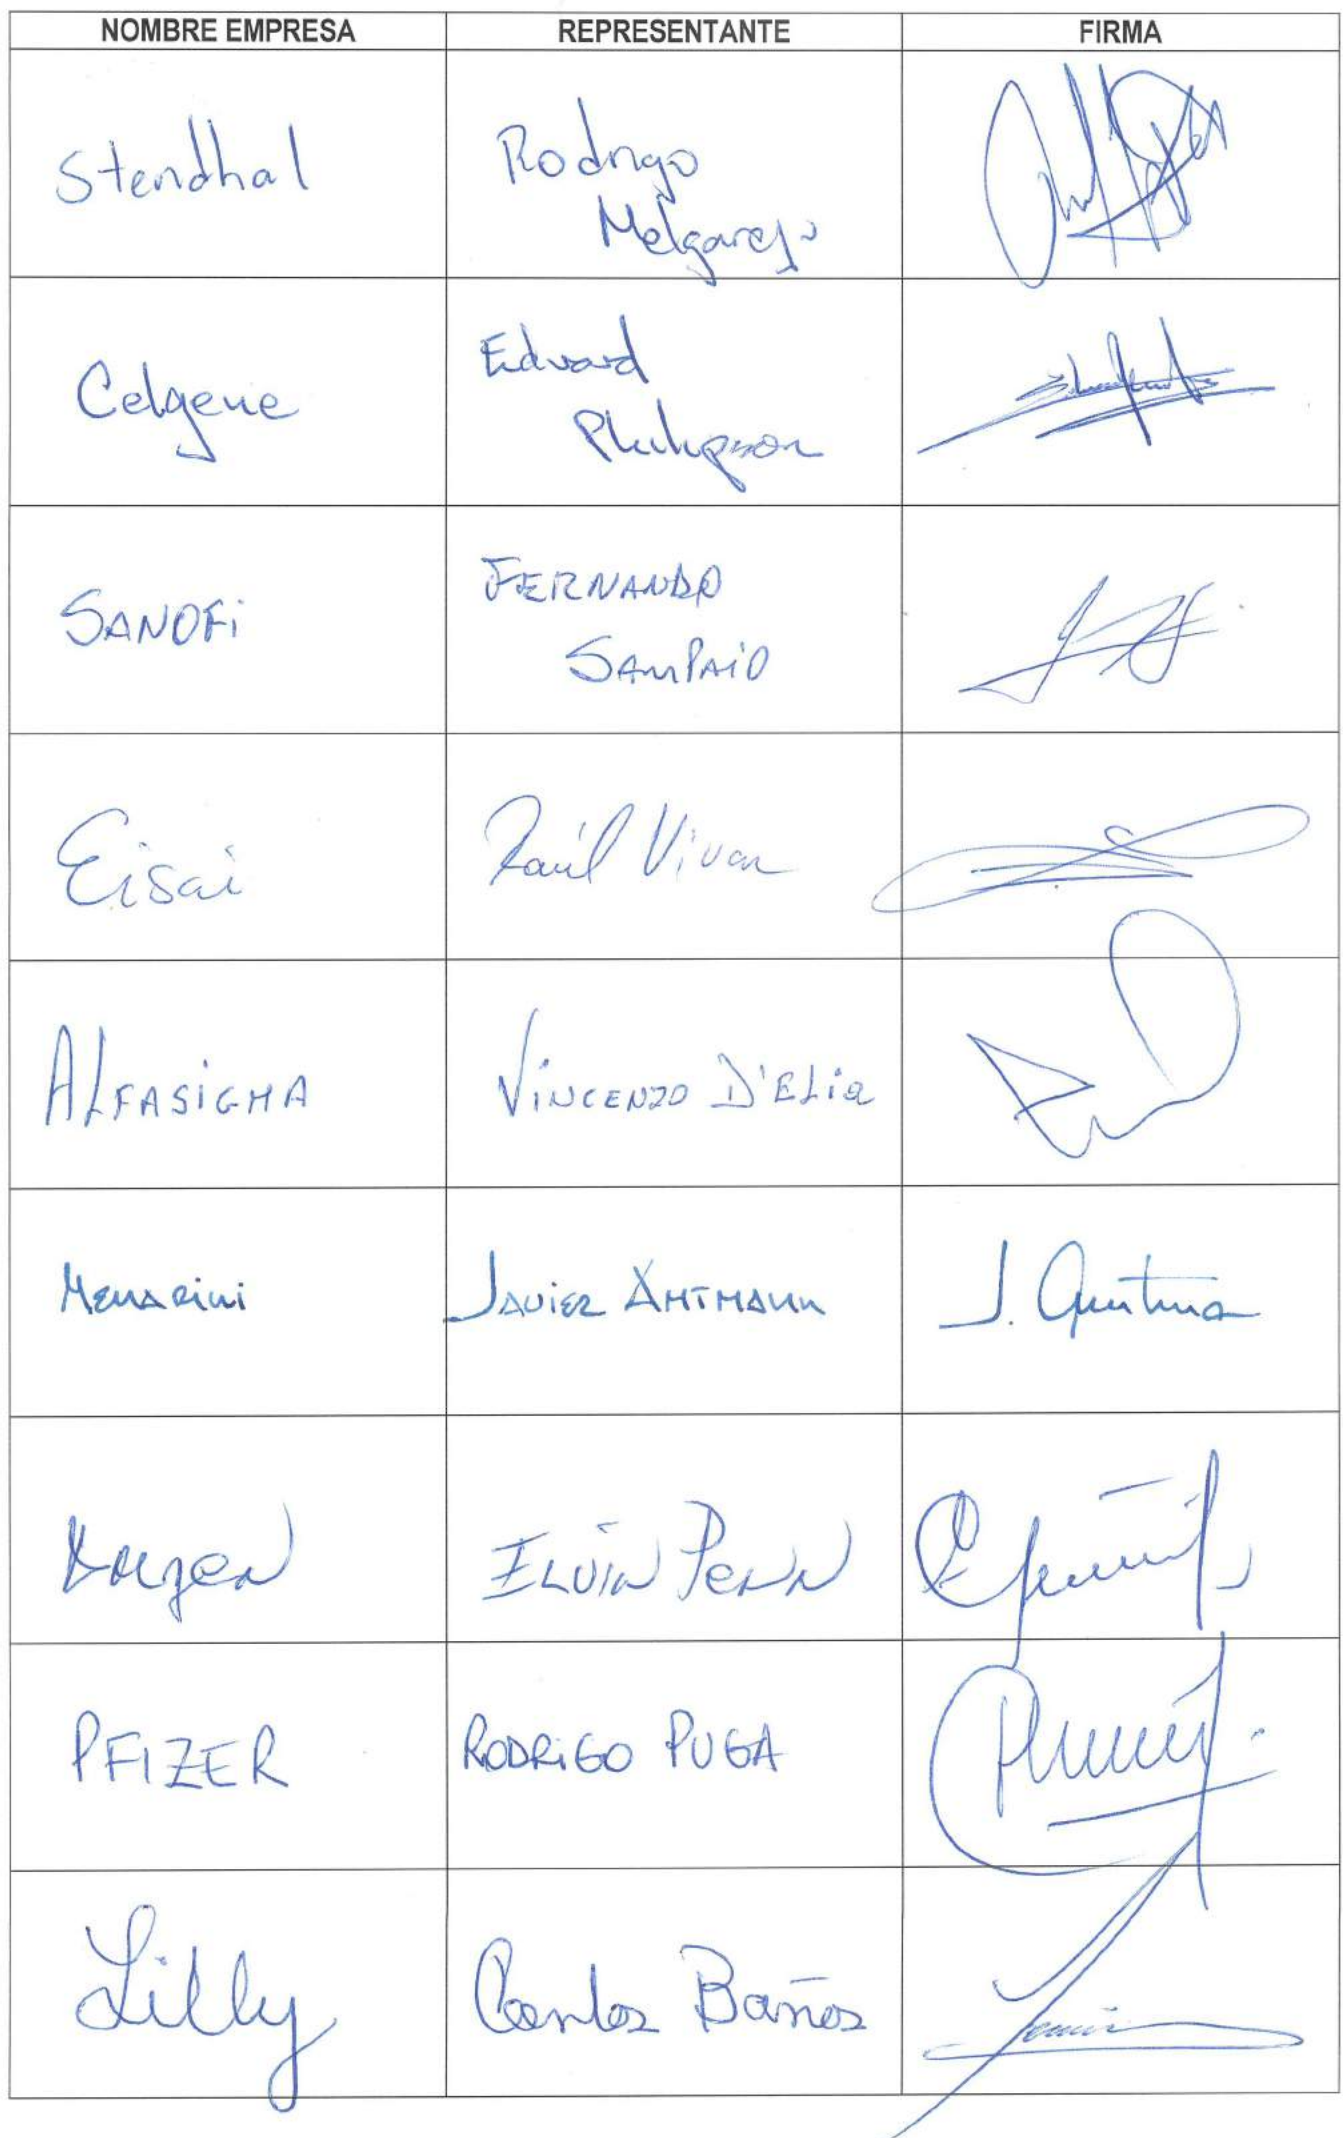 NOMBRE EMPRESA REPRESENTANTE FIRMA
Stendhal Rodrigo
Melgarejo
Celgene Edward
Philipson
SANOFi FERNANDO
SAMPAiO
Eisai Raúl Vivar
ALFASIGMA VINCENZO D'ELia
MENARINI JAVIER AMTMANN J.
Amgen ELVIN PENN
PFIZER RODRIGO PUGA
Lilly Carlos Baños